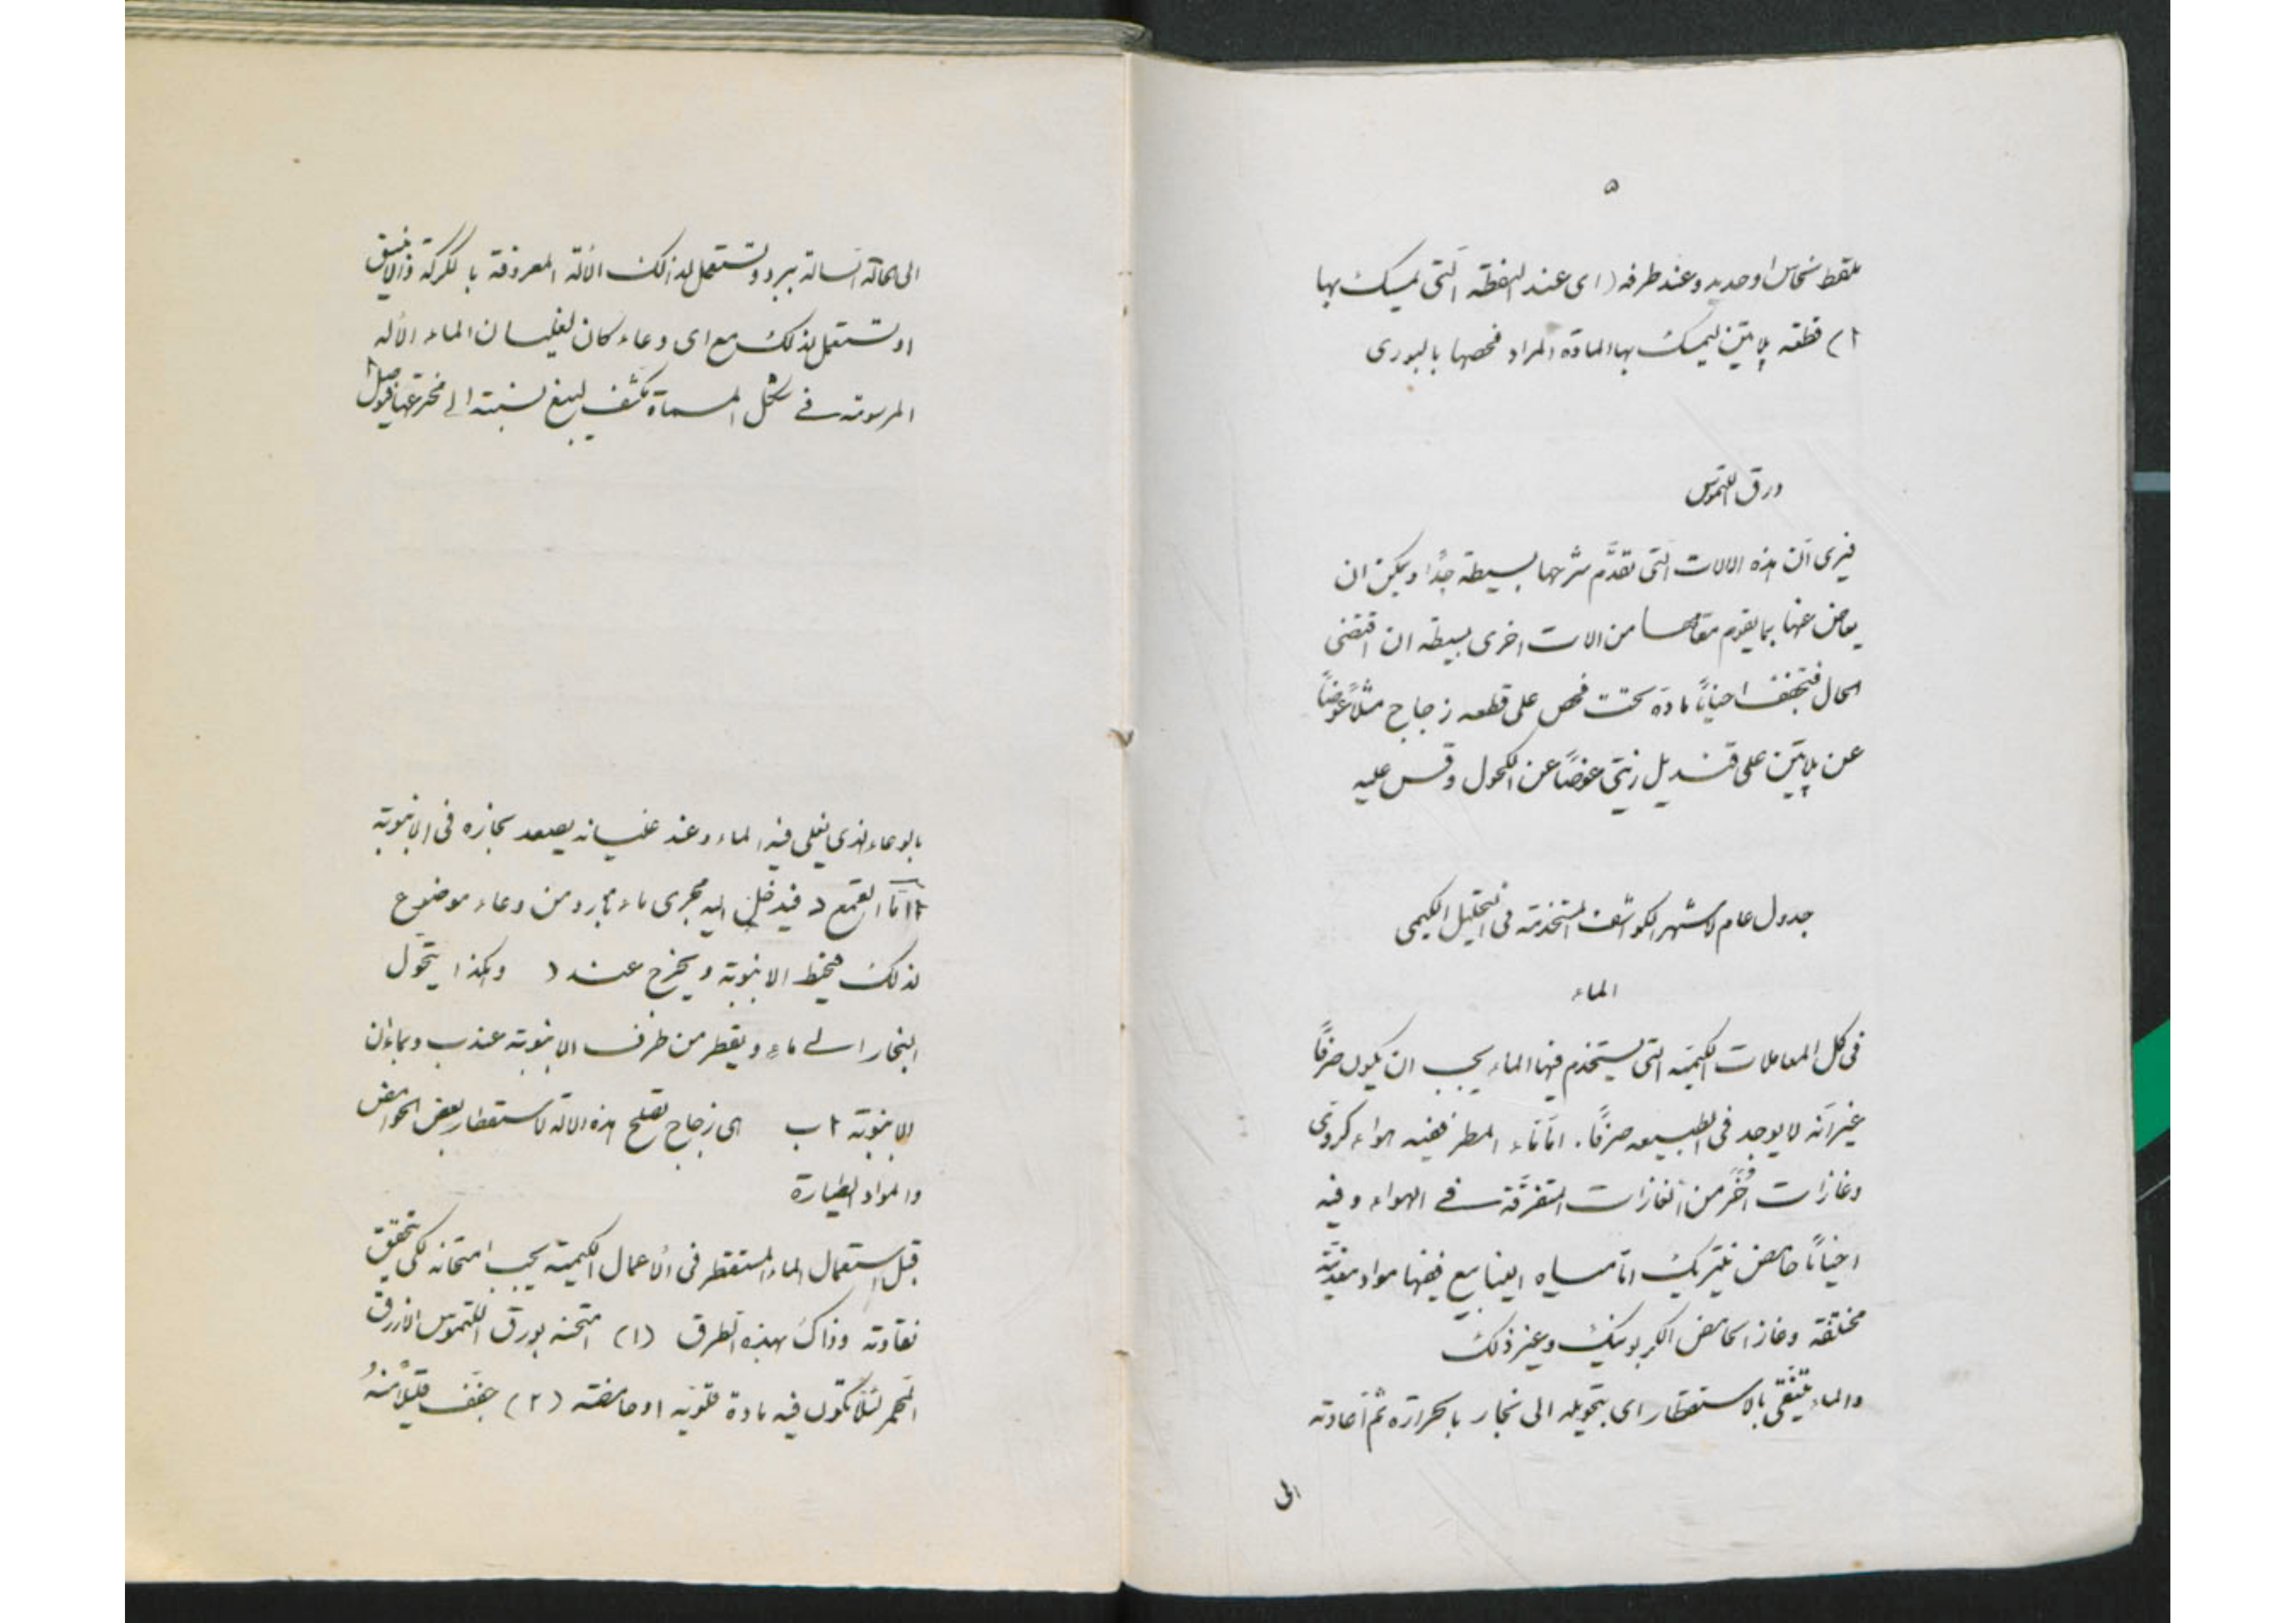 ٥
ملقط نحاس او حديد وعند طرفه (اى عند النقطة التى يمسك بها
١) قطعة پلاتين ليمسك بها المادة المراد فحصها بالبورى
ورق اللتموس
فيرى ان هذه الالات التى تقدَّم شرحها بسيطة جدًّا ويمكن ان
يعاض عنها بما يقوم مقامها من الات اخرى بسيطة ان اقتضى
الحال فتجفف احيانًا مادة تحت فحص على قطعه زجاج مثلاً عوضًا
عن پلاتين على قنديل زيتى عوضًا عن الكحول وقس عليه
جدول عام لاشهر الكواشف المستخدمة فى التحليل الكيمى
الماء
فى كل المعاملات الكيميه التى يستخدم فيها الماء يجب ان يكون صرفًا
غير انّه لا يوجد فى الطبيعه صرفًا. امّا ماء المطر ففيه هواء كروى
وغازات اُخَر من الغازات المتفرّقة فے الهواء وفيه
احيانًا حامض نيتريك امّا مياه الينابيع ففيها مواد معدنيّة
مختلفة وغاز الحامض الكربونيك وغير ذلك
والماء يتنقى بالاستقطار اى بتحويله الى بخار بالحرارة ثم اعادته
الى
الى الحالة السالة ببرد وتستعمل لذالك الألة المعروفة بالكركة والانبيق
او تستعمل لذلك مع اى وعاء كان لغليان الماء الأله
المرسومة فے شكل المسماة مكثف ليبغ نسبة الى مخترعها فيوصل ١
بالوعاء الذى يغلى فيه الماء وعند غليانه يصعد بخاره فى الانبوبة
١ امّا القمع د فيدخل اليه مجرى ماء بارد من وعاء موضوع
لذلك فيحيط الانبوبة ويخرج عند د وهكذا يتحّول
البخار الے ماء ويقطر من طرف الانبوبة عند ب وبما ان
الانبوبة ا ب اى زجاج تصلح هذه الالة لاستقطار بعض الحوامض
والمواد الطيارة
قبل استعمال الماء المستقطر فى الأعمال الكيمية يجب امتحانه لكى يتحقق
نقاوته وذاك بهذه الطرق (١) امتحنه بورق اللتموس الازرق
المحمر لئلّا تكون فيه مادة قلويّة او حامضة (٢) جفّف قليلاً منهُ